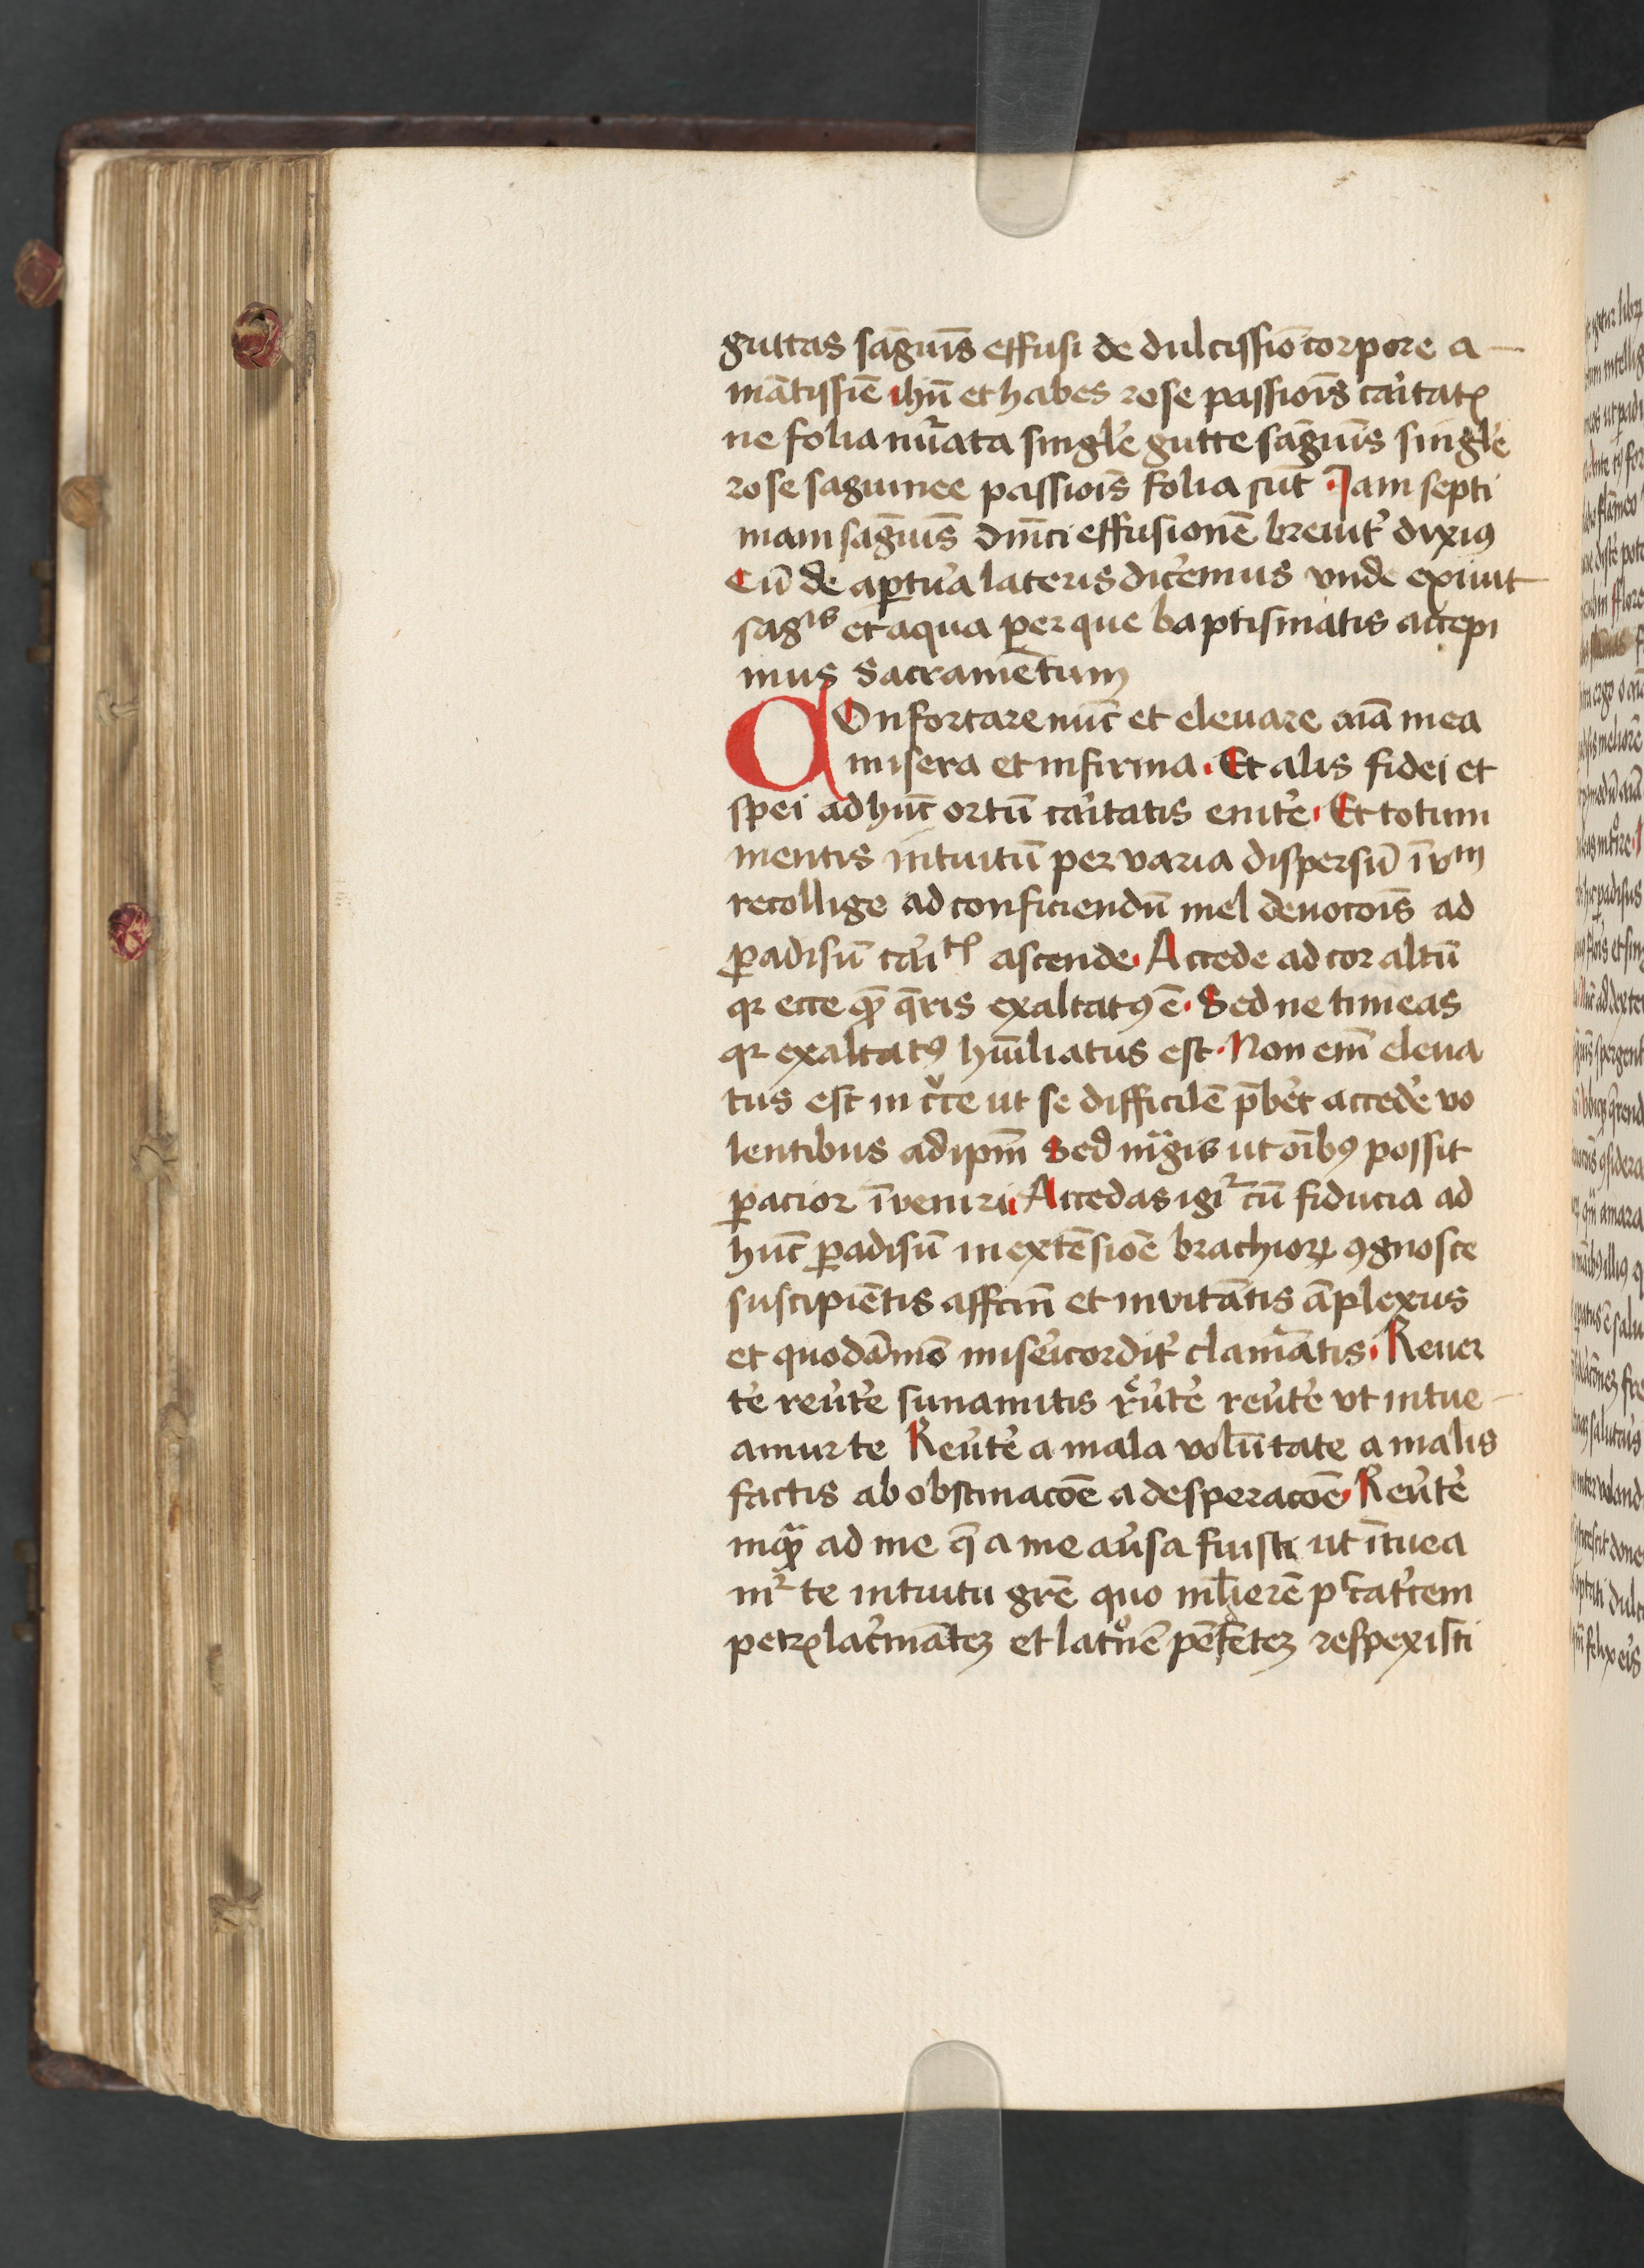 guttas sāguīs effusi de dulcissīo corpore a-
mātissīe ihū et habes rose passiōis caͥtatꝭ
ne folia nuͫata singl'e gutte sāguīs singl'e
rose saguinee passiōis folia sūt Jam septi
mam sāguīs dn̄ici effusionē breuit͛ diximꝰ
Cū de aꝑtu͛a lateris dic͛emus vnde exiuit
sagis et aqua per que baptismatis accepi
mus Sacramētum
Onfortare nūc et eleuare aīa mea
misera et infirma. Et alis fidei et
spei ad hūc ortū ca͛itatis enit͛e. Et totum
mentis intuitū per varia dispersū ī vm
recollige ad conficiendū mel deuocōis ad
ꝑadisū ca͛itꝭ ascende. Accede ad cor altū
qr ecce quē q̄ris exaltatꝰ ē. Sed ne timeas
qr exaltatꝰ hūiliatus est. Non em̄ eleua
tus est in c͛ce ut se difficilē p̄b͛et acced͛e vo
lentibus ad ipm̄ Sed magis ut oībꝰ possit
ꝑacior īveniri Accedas igiͬ cū fiducia ad
hūc ꝑadisū in extēsiōe brachioꝝ ꝯgnosce
suscipiētis affcm̄ et invitātis āplexus
et quodāmo mis͛eicordit͛ clamātis. Reuer
te reu͛te sunamitis reu͛te reu͛te vt intue-
amur te Reu͛te a mala volūtate a malis
factis ab obstinacōe a desperacōe Reu͛te
inquā ad me q̄ a me au͛sa fuisti ut ītuea
mͬ te intuitu gr̄e quo mulierē pͨcat͛cem
petrꝭ lac͛mātē et latͦnē pēdētē respexisti